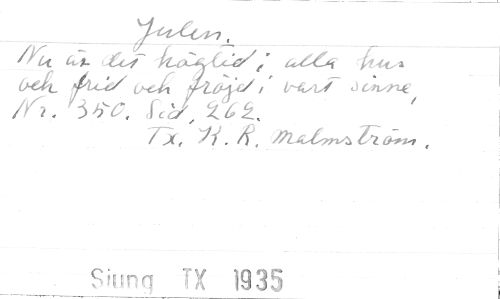 Julen.
Nu är det högtid i alla hus
och frid och fröjd i vart sinne,
Nr. 350. Sid. 262.
Tx. K. R. Malmström.
Sjung TX 1935